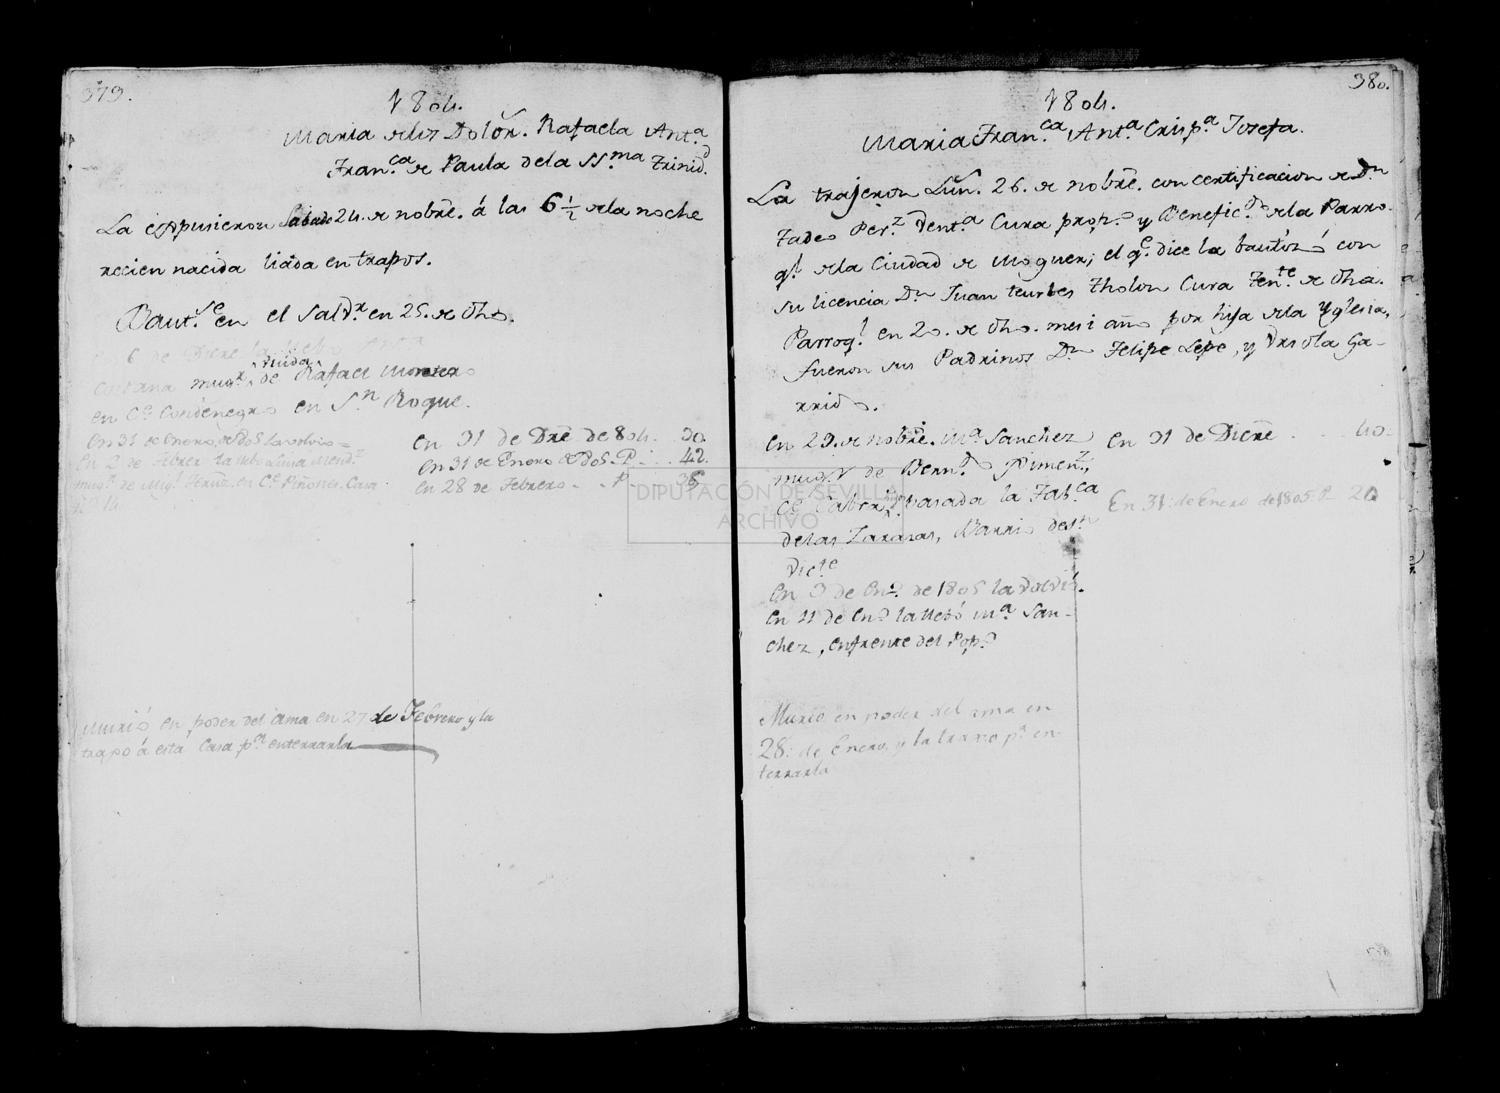 379.
1804.
Maria de los Dolor.s Rafaela Ant.a
Fran.ca de Paula de la SS.ma Trinid.d
La expusieron Sabado 24. de nobre. á las 6 1/2 de la noche
recien nacida liada en trapos.
Baut.se en el Salv.r en 25. de dho.
6 de Dicre la
viuda
mug.r de Rafael Moreno
en C.e Condenegro en S.n Roque.
En 31 de Enero, de 805 la volvio
En 2 de Febrer. la llebo Luisa Mend.z
mug.r de Mig.l en C.e Piñones. Casa
n.o 14
En 31 de Dre de 804. . 30.
En 31 de Enero de 805. P. . . 42.
En 28 de Febrero - . P. . 36
Murió en poder del ama en 27 de Febrero y la
trajo á esta Casa p.a enterrarla
380.
1804.
Maria Fran.ca Ant.a Crisp.a Josefa.
La trajeron Lun. 26. de nobre. con certificacion de D.n
Tadeo Per.z Vent.a Cura prop.o y Benefic.do de la Parro-
q.l de la Ciudad de Moguer; el q.e dice la bautizó con
su licencia D.n Juan Tholon Cura Ten.te de dha.
Parroq.l en 20. de dho. mes i año por hija de la Yglesia,
fueron sus Padrinos D.n Felipe Lepe, y Ursola Ga-
rrido.
En 29. de nobre. M.a Sanchez
mug.r de Bern.do Ximen.z,
C.e pasada la Fab.ca
de las Zarazas, Barrio de S.n
Vic.te
En 3 de En.o de 1805 la volvió.
En 11 de En.o la llebó M.a San-
chez, enfrente del Pop.o
En 31 de Dicre . . . 40.
En 31 de Enero de 1805. P. 20
Murio en poder del ama en
28 de Enero, y la traxo p.a en-
terrarla
DIPUTACIÓN DE SEVILLA
ARCHIVO